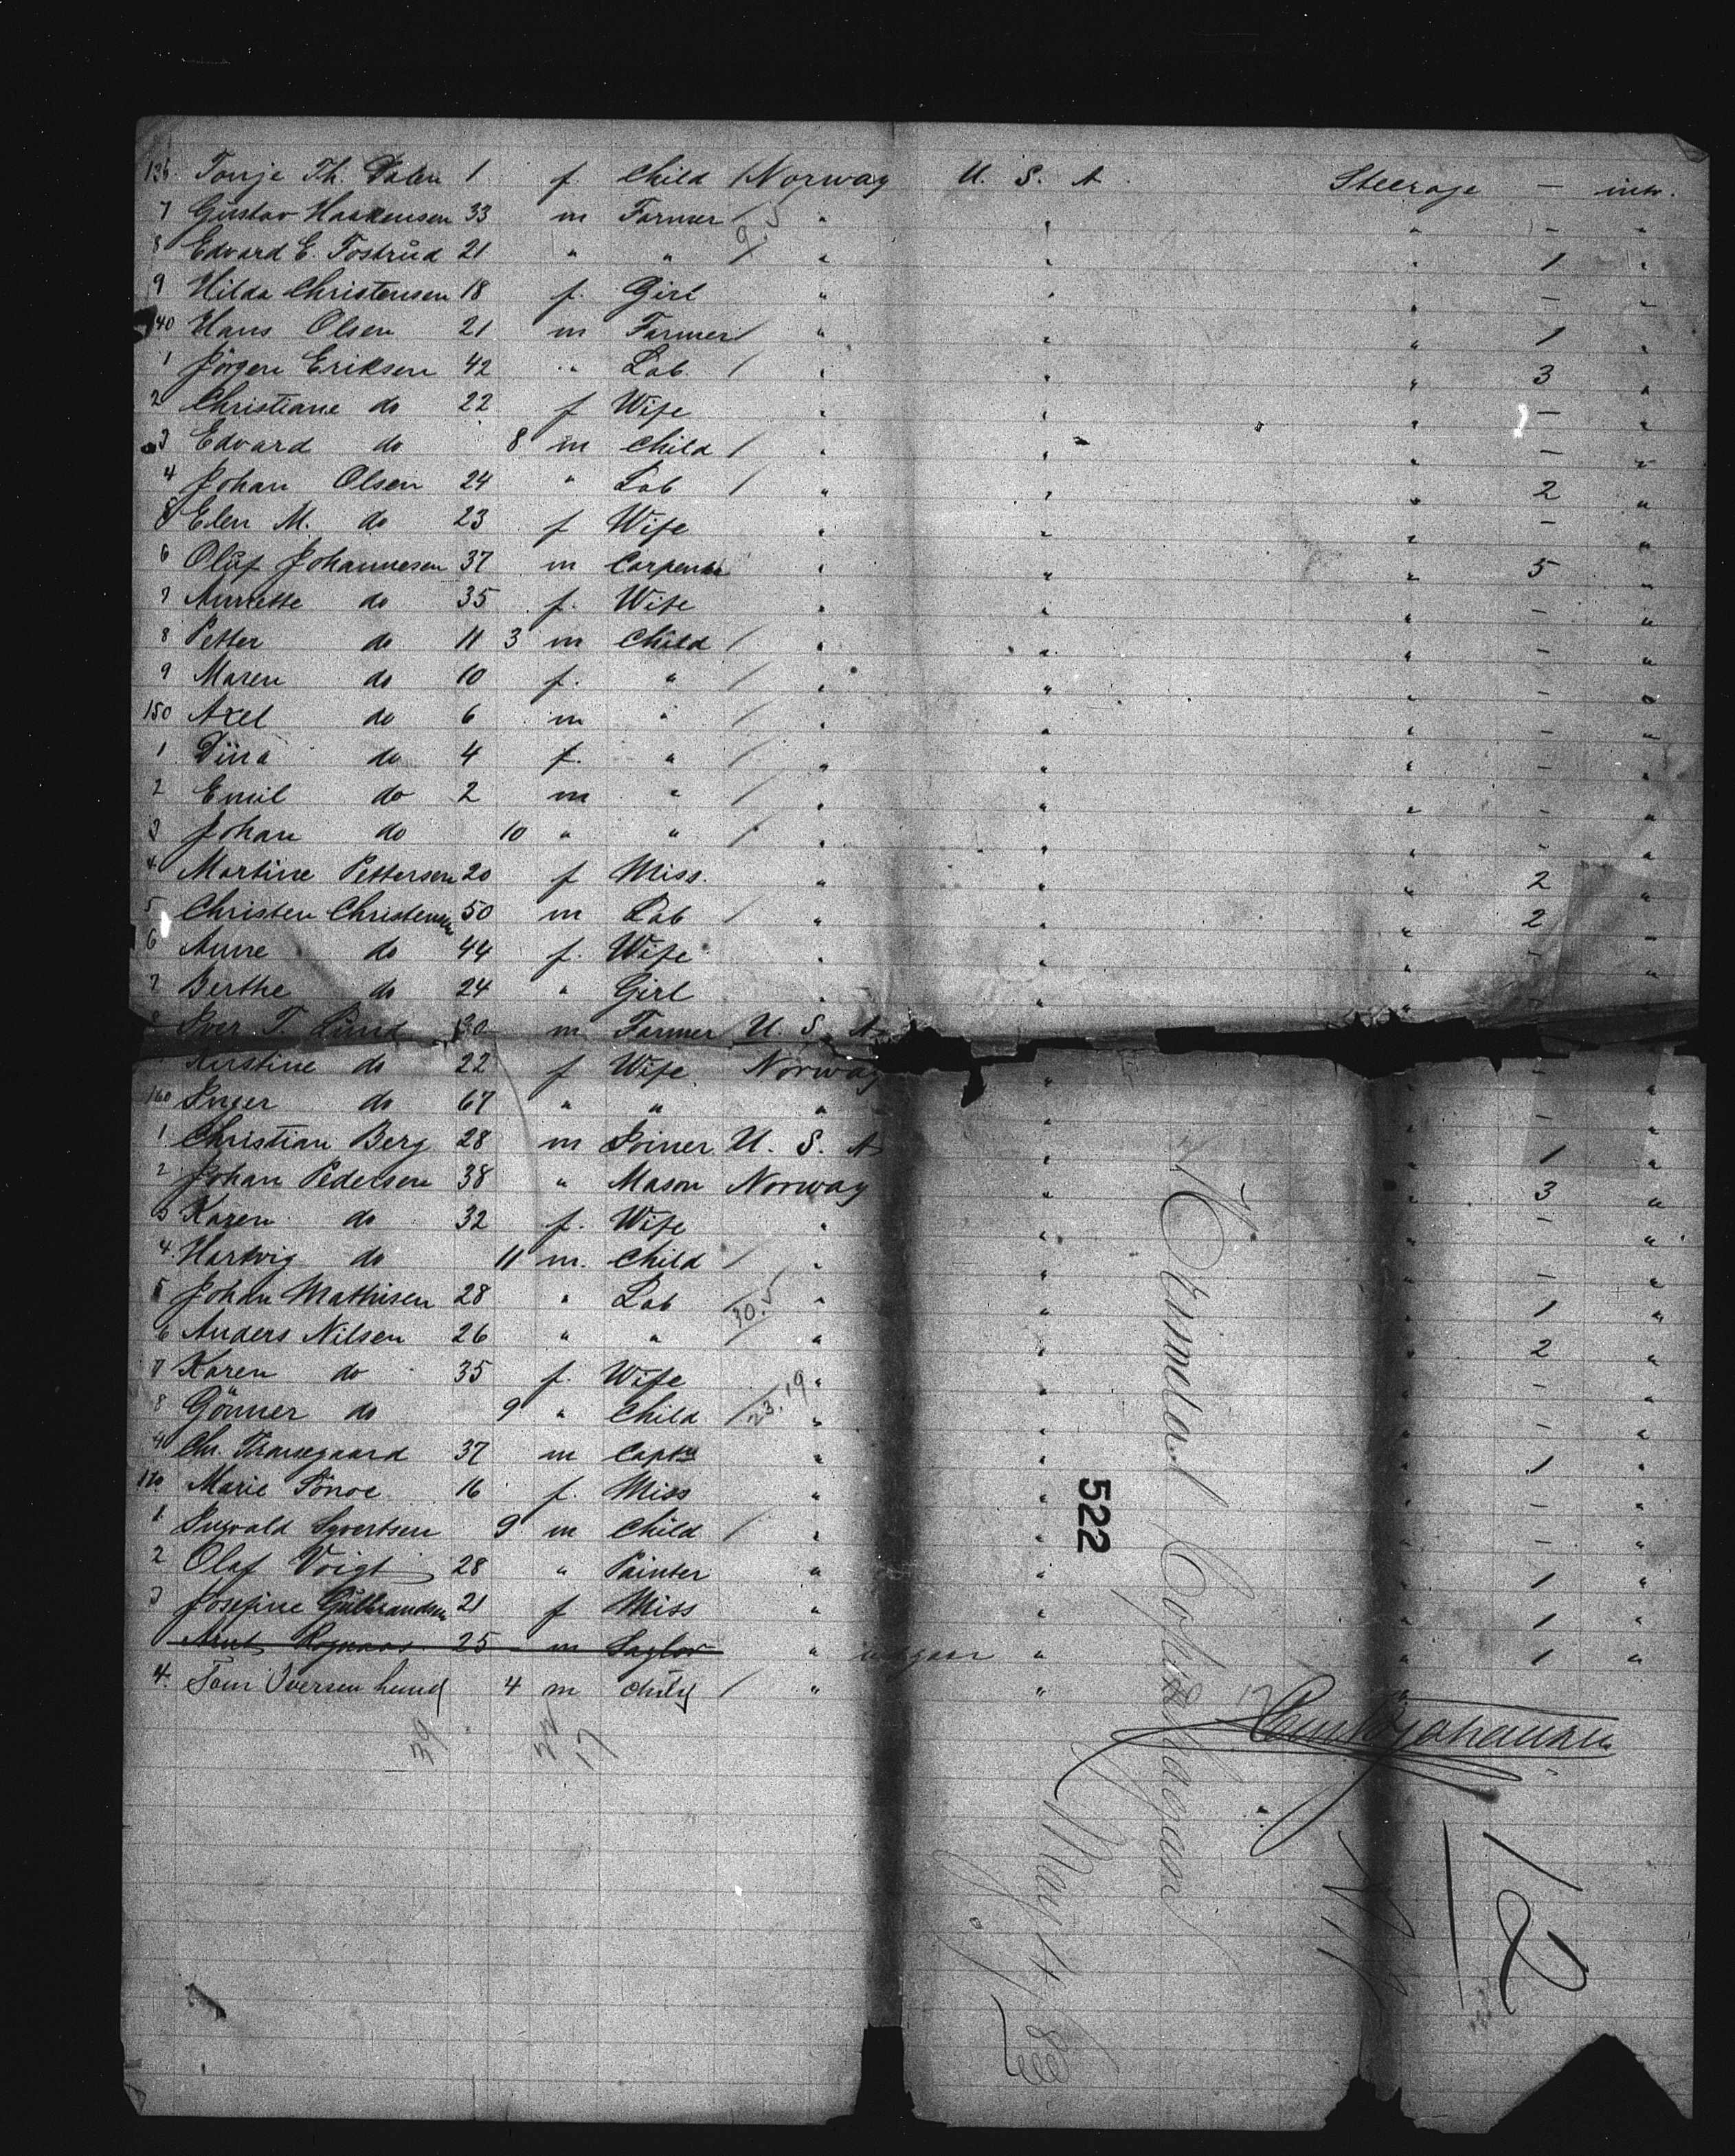 136. Tonje Th. Dalen 1 f. Child / Norway U. S. A. Steerage – intr.
7 Gustav Haakensen 33 m Farmer / " " " – "
8 Edvard E. Tostrüd 21 " " / " " " 1 "
9 Hilda Christensen 18 f. Girl " " " – "
140 Hans Olsen 21 m Farmer / " " " 1 "
1 Jörgen Eriksen 42 " Lab. / " " " 3 "
2 Christiane do 22 f Wife " " " – "
3 Edvard do 8 m Child / " " " – "
4 Johan Olsen 24 " Lab / " " " 2 "
5 Elen M. do 23 f Wife " " " – "
6 Olüf Johannesen 37 m Carpenter " " " 5 "
7 Annette do 35 f. Wife " " " – "
8 Petter do 11 3 m Child / " " " – "
9 Maren do 10 f. " / " " " – "
150 Axel do 6 m " / " " " – "
1 Dina do 4 f. " / " " " – "
2 Emil do 2 m " / " " " – "
3 Johan do 10 " " / " " " – "
4 Martine Pettersen 20 f Miss. " " " 2 "
5 Christen Christensen 50 m Lab / " " " 2 "
6 Anne do 44 f. Wife " " " – "
7 Berthe do 24 " Girl " " "
8 Iver T. Lünd 30 m Farmer U. S. A.
Kirstine do 22 f Wife Norway " " – "
160 Inger do 67 " " " " – "
1 Christian Berg 28 m Joiner U. S. A " " 1 "
2 Johan Pedersen 38 " Mason Norway " " 3 "
3 Karen do 32 f. Wife " " " – "
4. Hartvig do 11 m. Child / " " " – "
5 Johan Mathisen 28 " Lab / " " " 1 "
6 Anders Nilsen 26 " " " " " 2 "
7 Karen do 35 f. Wife " " " – "
8 Gönner do 9 " Child / " " " – "
9 Chr. 37 m Captn " " " 1 "
170 Marie 16 f. Miss " " " – "
1 Ingvald Syvertsen 9 m Child / " " " – "
2 Olaf Voigt 28 " Painter " " " 1 "
3 Josefine Gülbrandsen 21 f Miss " " " 1 "
25 m Saylor " " " 1 "
4. Tom Iversen Lund 4 m Child / " " "
9.5
30.5
23.19
39
22
17
522
Thingvalla Copenhagen
May 14/88
12